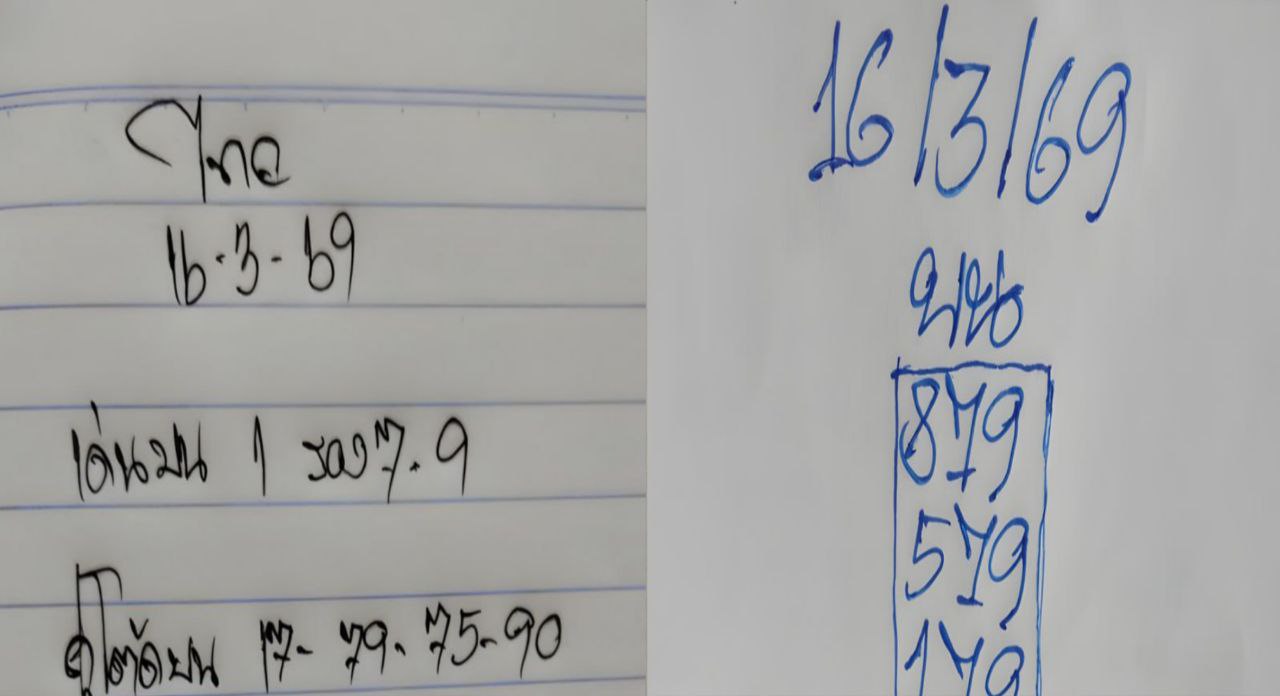 ไทย
16-3-69
เด่นบน 1 รอง 7.9
คู่โต๊ดบน 17-79-75-90
16/3/69
บน
879
579
179